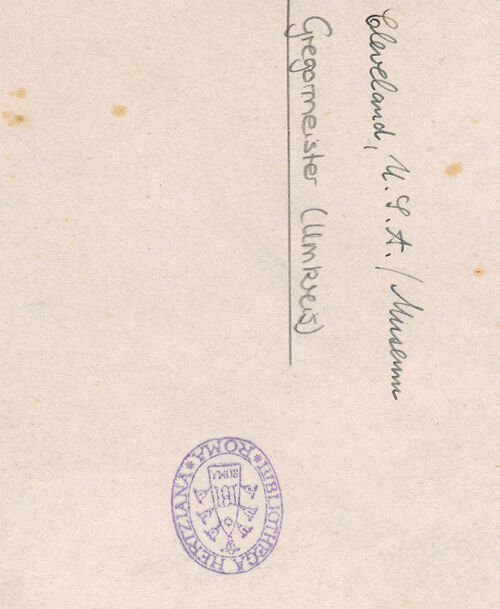 Cleveland, U.S.A./Museum
Gregormeister (Umkreis)
BIBLIOTHECA HERTZIANA * ROMA *
ROMA